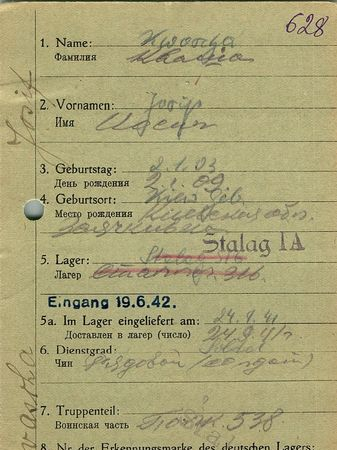 628
1. Name:
Фамилия
2. Vornamen: Josip
Имя Иосип
3. Geburtstag: 2.1.03
День рождения
4. Geburtsort: Kiew Geb.
Место рождения Киевская обл.
Stalag IA
5. Lager: Stalag 316
Лагер Сталаг 316
Eingang 19.6.42.
5a. Im Lager eingeliefert am: 24.9.41
Доставлен в лагер (число) 24.9.41г
6. Dienstgrad: Soldat
Чин Рядовой (солдат)
7. Truppenteil:
Воинская часть 538
8. Nr. der Erkennungsmarke des deutschen Lagers:
Josif